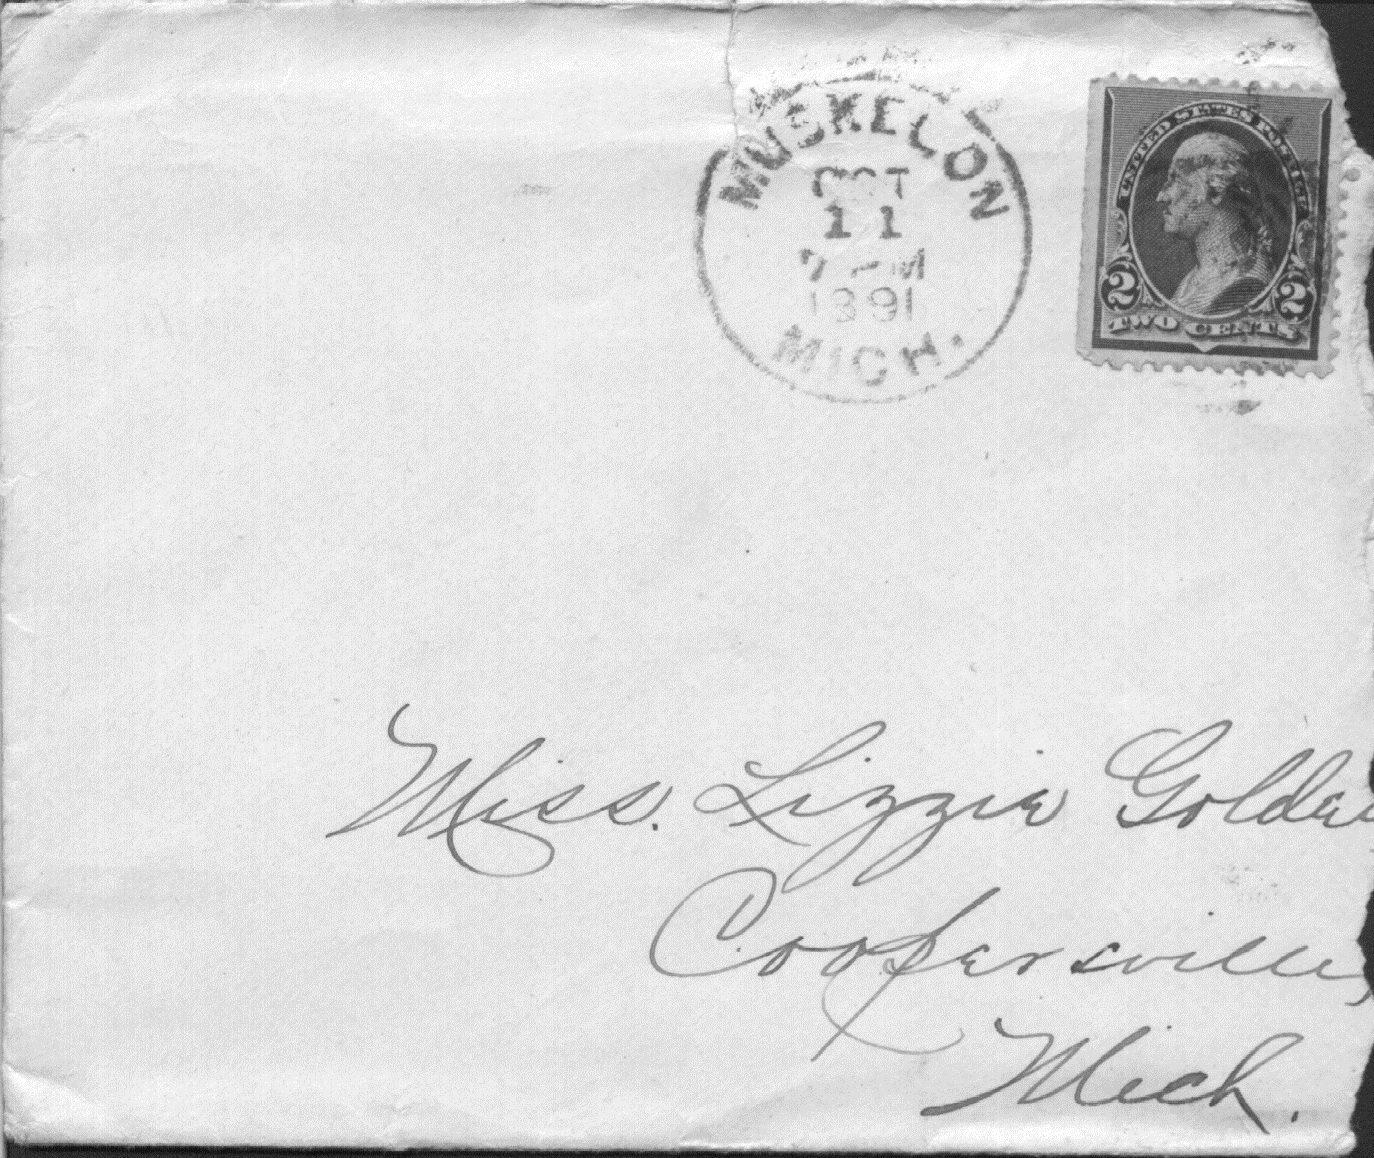 MUSKEGON
OCT
11
7 PM
1891
MICH.
UNITED STATES POSTAGE
2 2
TWO CENTS
Miss. Lizzie Golde
Coopersville,
Mich.